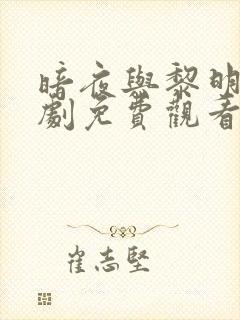 暗夜與黎明
劇免費觀看
崔志堅